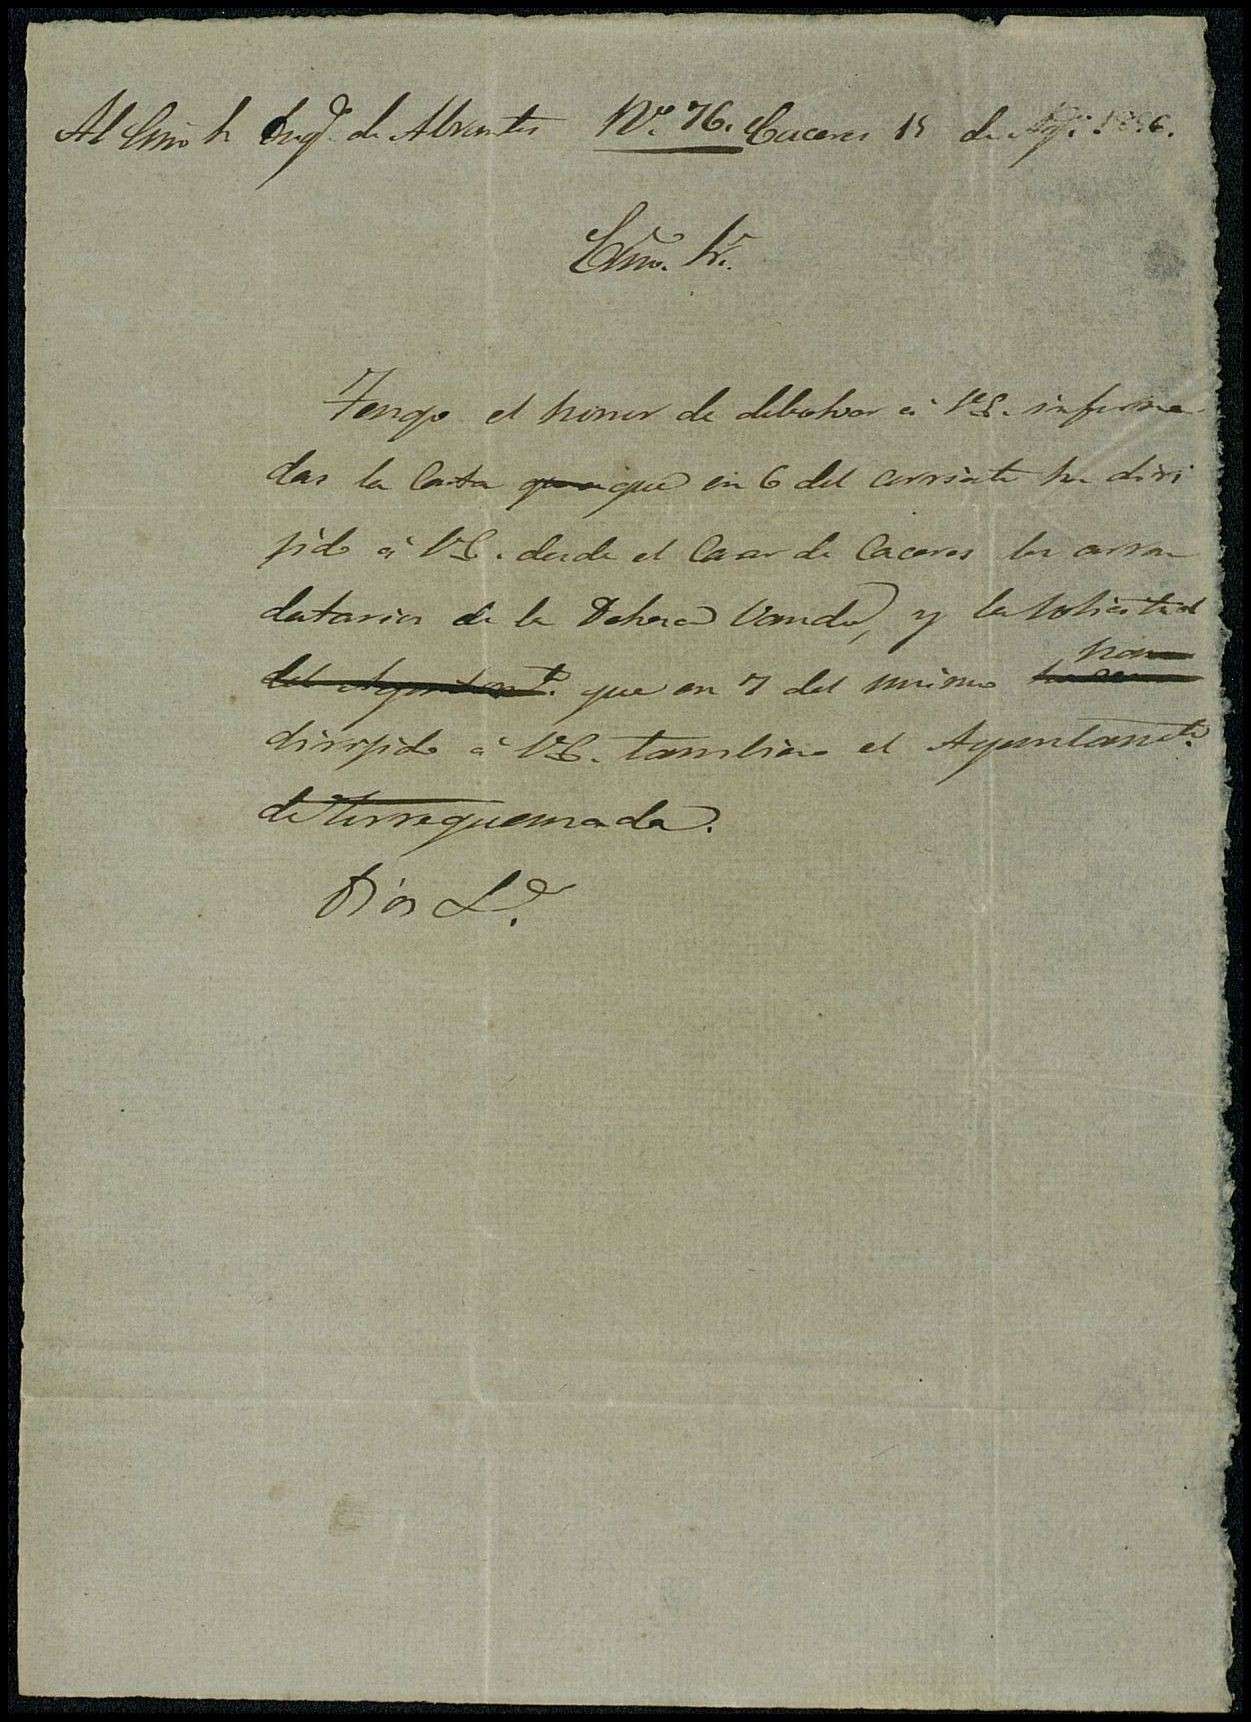 Al Exmo Sr Duqe de Abrantes Nº. 76. Caceres 15 de Agto 1856.
Exmo. Sr.
Tengo el honor de debolver á V.E. informa-
das la Carta que en 6 del corriente ha diri
jido á V.E. desde el Casar de Caceres los arren
datarios de la Dehesa y la solicitud
del Ayuntamto. que en 7 del mismo han
dirijido á V.E. tambien el Ayuntamto.
de Torrequemada.
Dios &a.